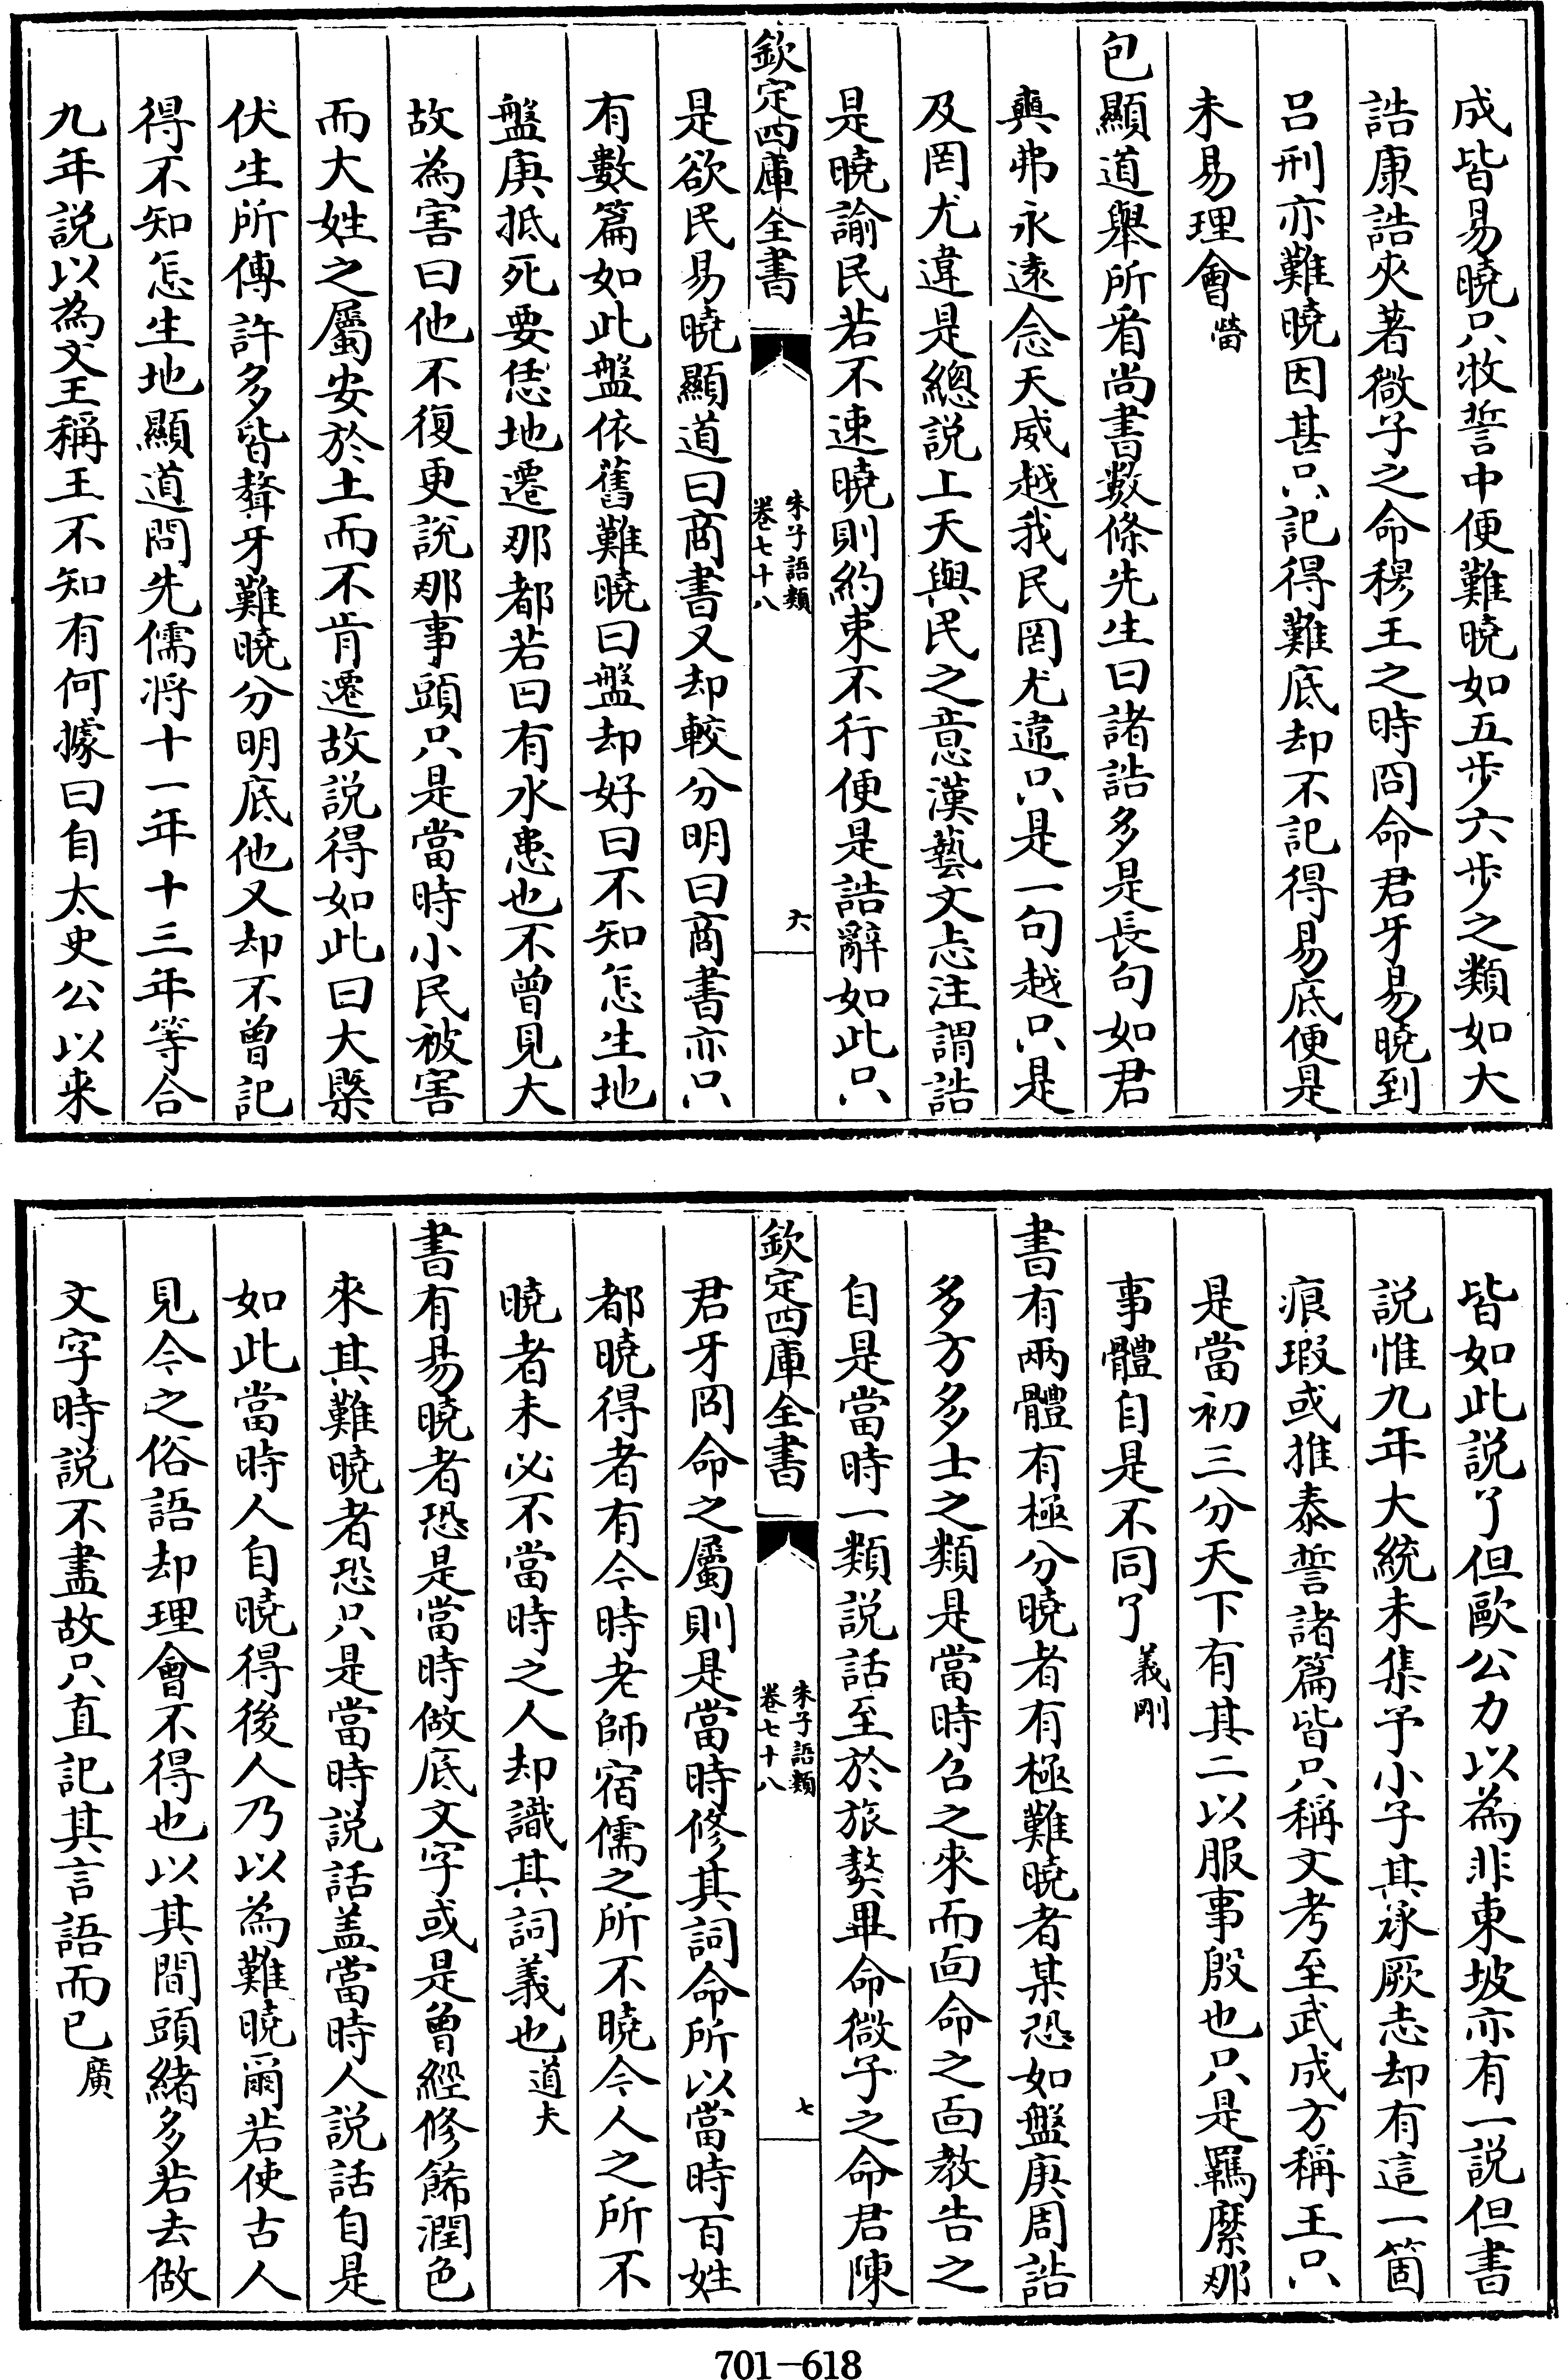 成皆易曉只牧誓中便難曉如五步六步之類如大
誥康誥夾著微子之命穆王之時冏命君牙易曉到
呂刑亦難曉因甚只記得難底却不記得易底便是
未易理會㽦
包顯道舉所看尚書數條先生曰諸誥多是長句如君
奭弗永遠念天威越我民罔尤違只是一句越只是
及罔尤違是總説上天與民之意漢藝文志注謂誥
是曉諭民若不速曉則約束不行便是誥辭如此只
欽定四庫全書
朱子語類
卷七十八
六
是欲民易曉顯道曰商書又却較分明曰商書亦只
有數篇如此盤依舊難曉曰盤却好曰不知怎生地
盤庚抵死要恁地遷那都若曰有水患也不曾見大
故為害曰他不復更說那事頭只是當時小民被害
而大姓之屬安於土而不肯遷故説得如此曰大槩
伏生所傳許多皆聱牙難曉分明底他又却不曾記
得不知怎生地顯道問先儒将十一年十三年等合
九年説以為文王稱王不知有何據曰自太史公以来
皆如此説了但歐公力以為非東坡亦有一説但書
説惟九年大統未集予小子其承厥志却有這一箇
痕瑕或推泰誓諸篇皆只稱文考至武成方稱王只
是當初三分天下有其二以服事殷也只是羈縻那
事體自是不同了義剛
書有兩體有極分曉者有極難曉者某恐如盤庚周誥
多方多士之類是當時召之來而面命之面教告之
自是當時一類説話至於旅獒畢命微子之命君陳
欽定四庫全書
朱子語類
卷七十八
七
君牙冏命之屬則是當時修其詞命所以當時百姓
都曉得者有今時老師宿儒之所不曉今人之所不
曉者未必不當時之人却識其詞義也道夫
書有易曉者恐是當時做底文字或是曾經修餙潤色
來其難曉者恐只是當時説話盖當時人説話自是
如此當時人自曉得後人乃以為難曉爾若使古人
見今之俗語却理會不得也以其間頭緒多若去做
文字時説不盡故只直記其言語而已廣
701-618